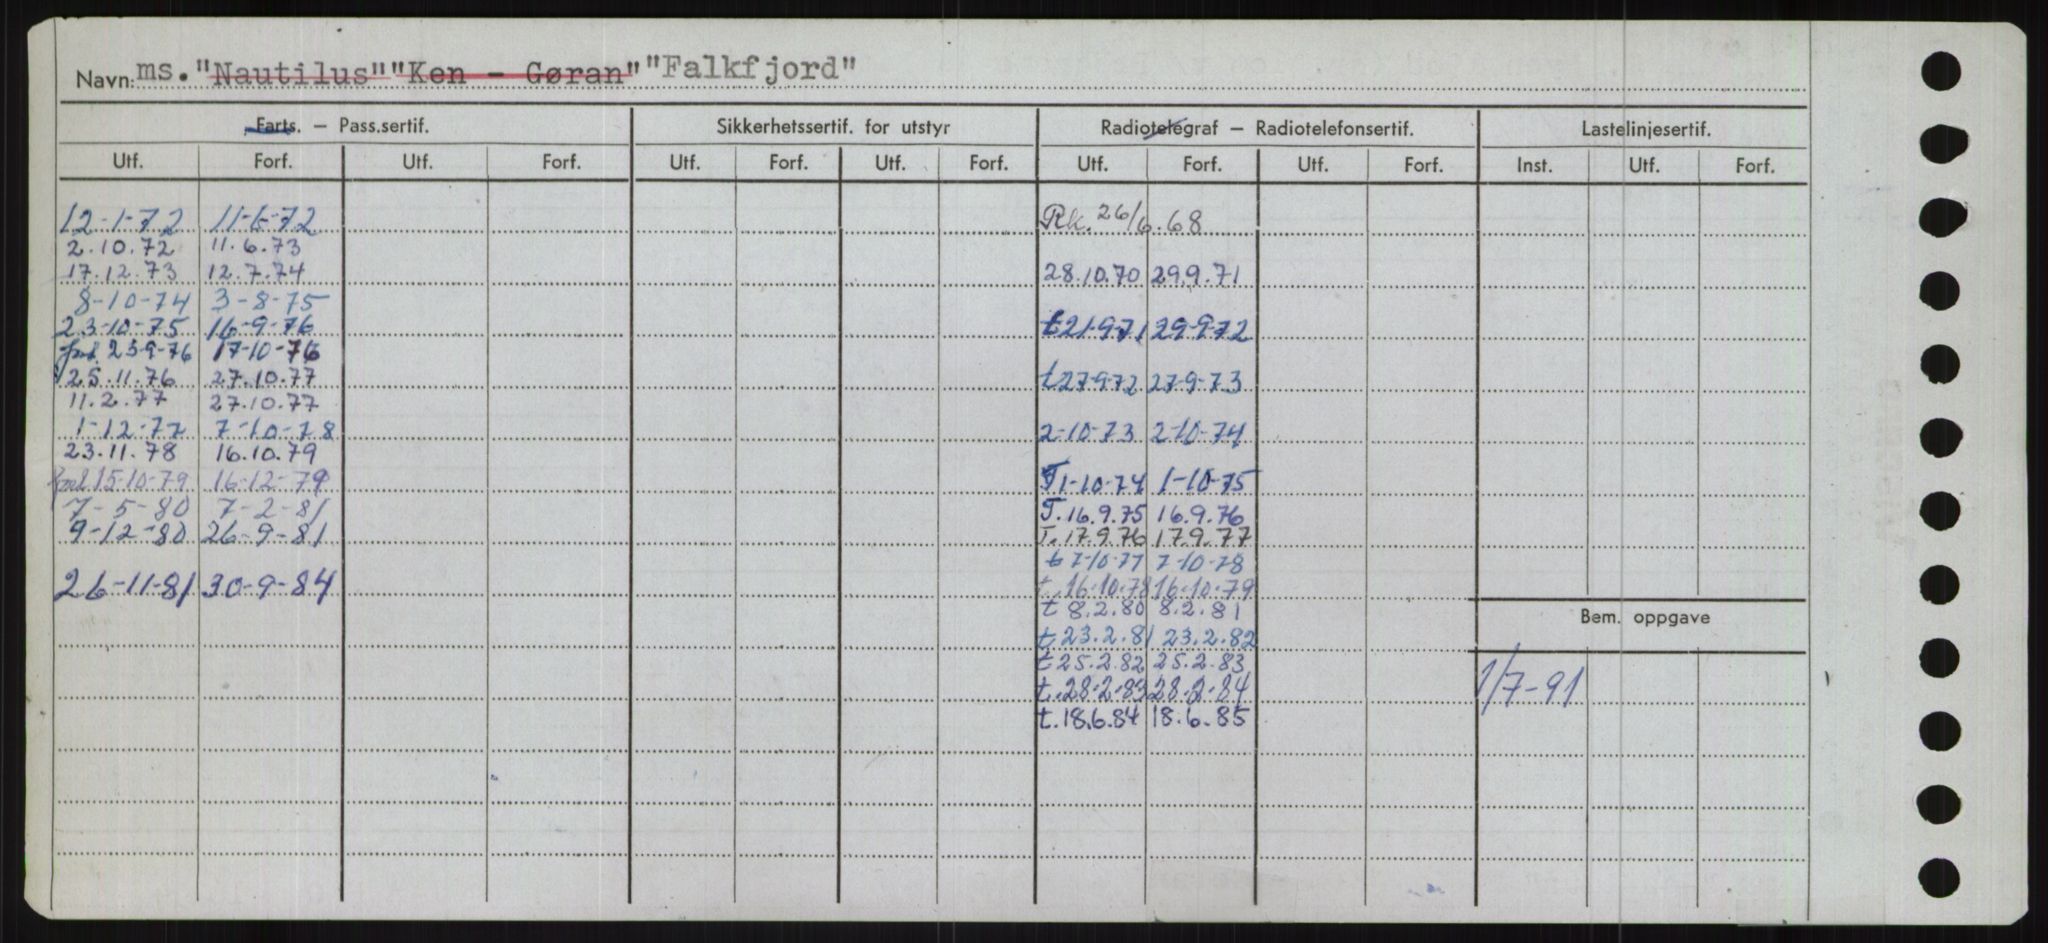 Navn: ms. "Nautilus" "Ken - Gøran" "Falkfjord"
Farts. – Pass.sertif. Sikkerhetssertif. for utstyr Radiotelegraf – Radiotelefonsertif. Lastelinjesertif.
Utf. Forf. Utf. Forf. Utf. Forf. Utf. Forf. Utf. Forf. Utf. Forf. Inst. Utf. Forf.
12-1-72 11-6-72 Rk. 26/6.68
2.10.72 11.6.73
17.12.73 12.7.74 28.10.70 29.9.71
8-10-74 3-8-75
23-10-75 16-9-76 t 21-9-71 29-9-72
23-9-76 17-10-76
25.11.76 27.10.77 t 27-9-72 27-9-73
11.2.77 27.10.77
1-12-77 7-10-78 2-10-73 2-10-74
23.11.78 16.10.79
15-10-79 16-12-79 T 1-10-74 1-10-75
7-5-80 7-2-81 T. 16.9.75 16.9.76
9-12-80 26-9-81 T. 17.9.76 17.9.77
t 7-10-77 7-10-78
26-11-81 30-9-84 t. 16-10-78 16-10-79
t 8.2.80 8.2.81
Bem. oppgave
t 23.2.81 23.2.82
t 25.2.82 25.2.83
t. 28-2-83 28-2-84 1/7-91
t. 18.6.84 18.6.85